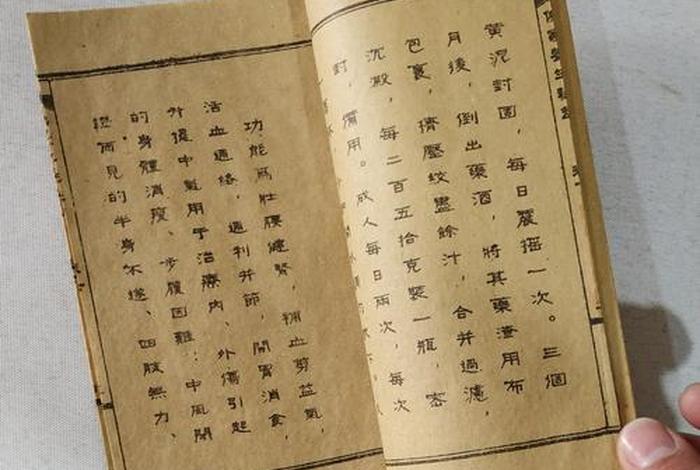 黄泥封固，每日震摇一次。三個
月後，倒出藥酒，將其藥渣用布
包裹，擠壓絞盡餘汁，合并過濾，
沉澱，每二百五拾克裝一瓶，密
封，備用。成人每日兩次，每次
功能爲壯腰健腎，補血剪益氣，
活血通絡，通利关節，開胃消食，
升提中氣用于治療内、外傷引起
的身體消瘦、步履困難；中風閉
證而見的半身不遂、四肢無力、